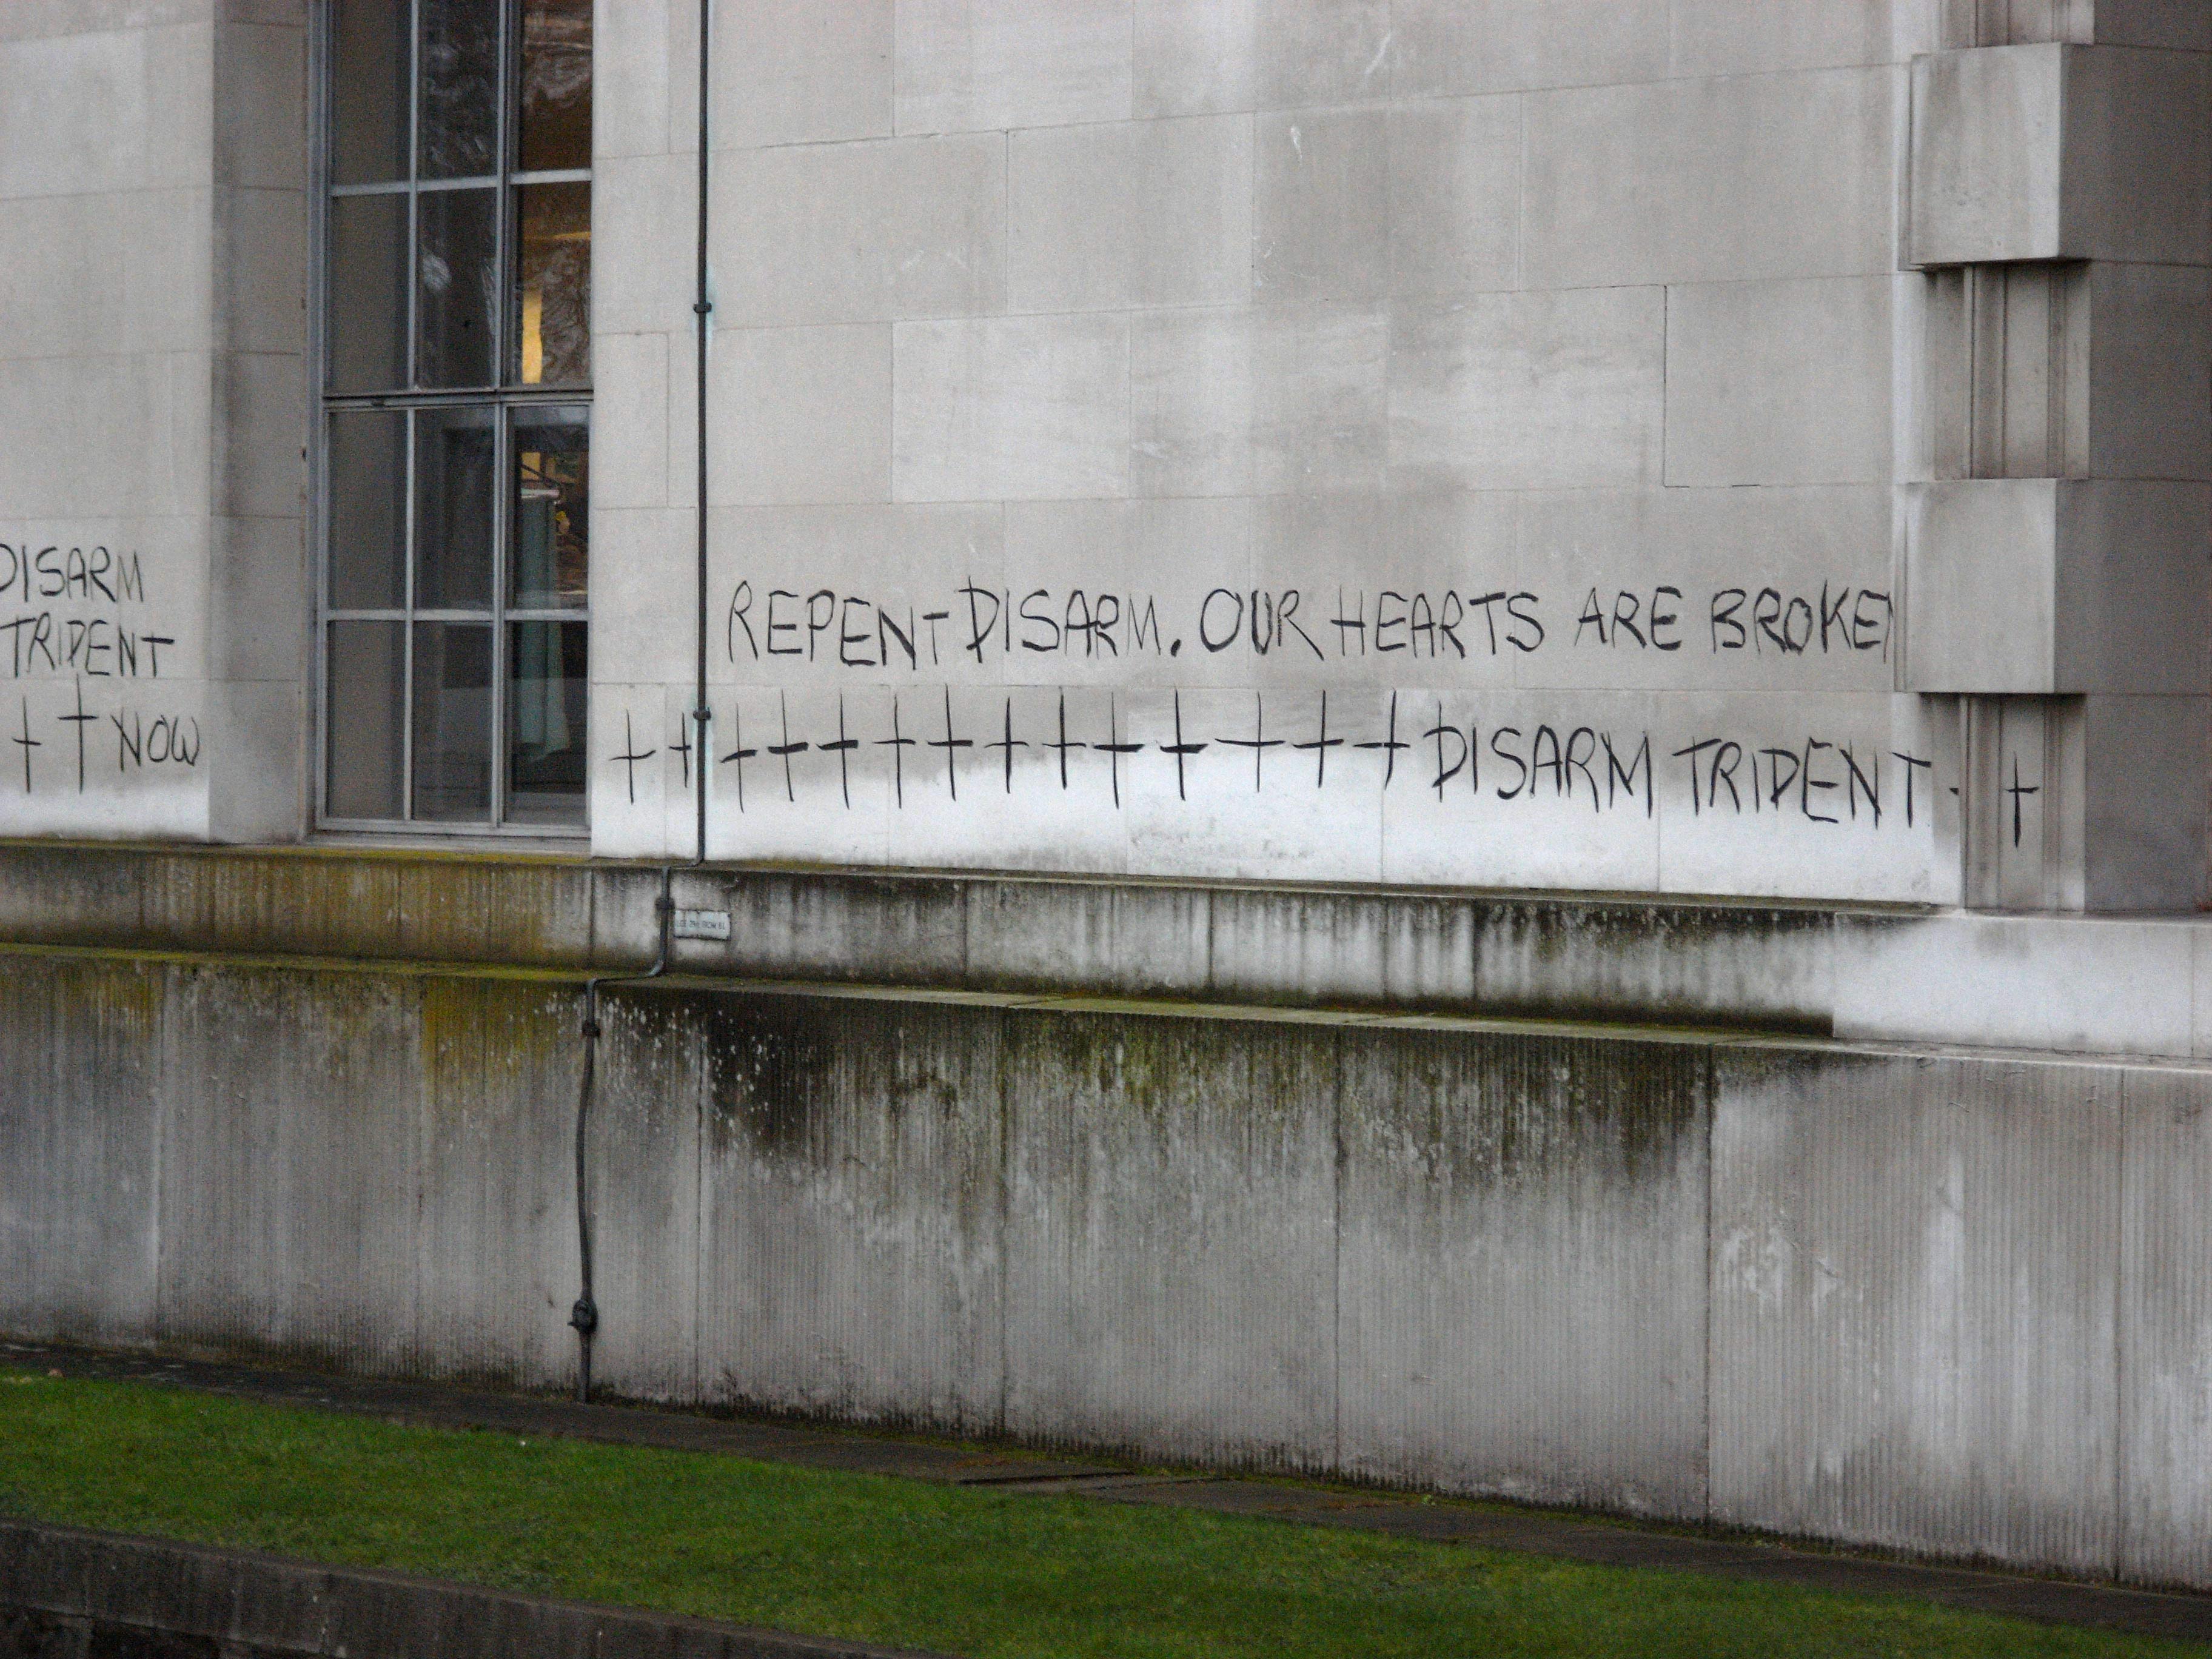 DISARM
TRIDENT
NOW
REPENT DISARM. OUR HEARTS ARE BROKEN
DISARM TRIDENT.